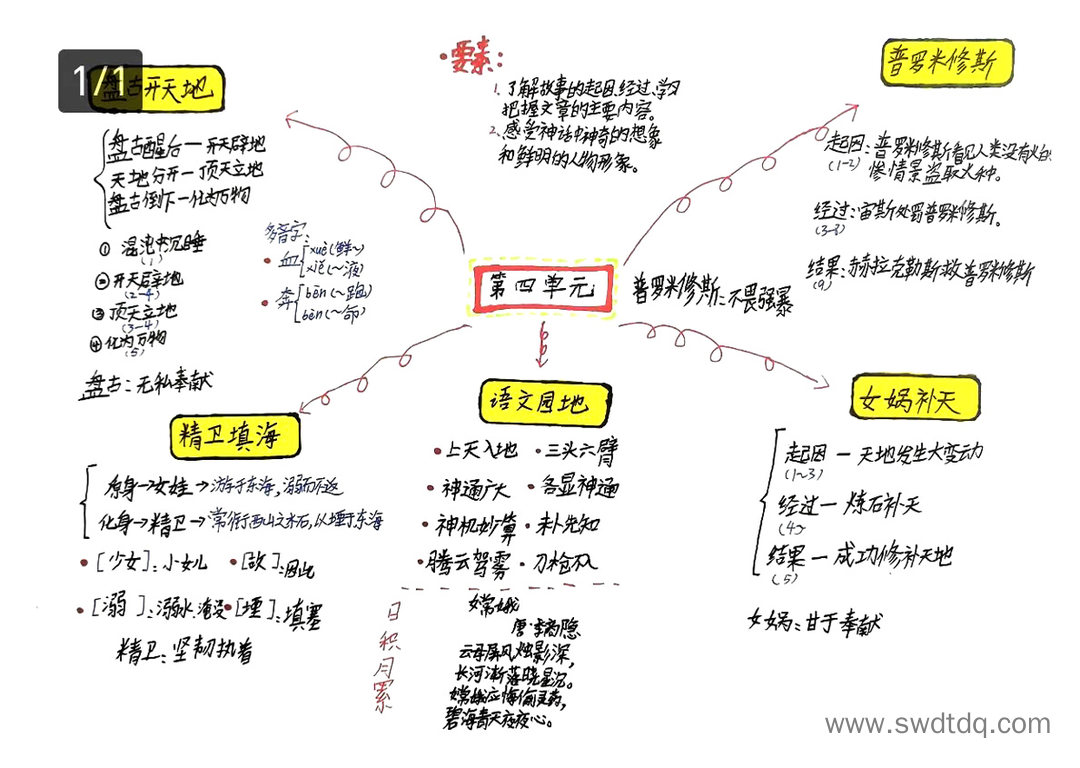 1/1
盘古开天地
盘古醒后—开天辟地
天地分开—顶天立地
盘古倒下—化为万物
① 混沌中沉睡
(1)
② 开天辟地
(2~4)
③ 顶天立地
(3~4)
④ 化为万物
(5)
盘古：无私奉献
多音字：
血
xuè(鲜~)
xiě(~液)
奔
bēn(~跑)
bèn(~命)
要素：
1. 了解故事的起因、经过、学习
把握文章的主要内容。
2. 感受神话中神奇的想象
和鲜明的人物形象。
普罗米修斯
起因：普罗米修斯看见人类没有火的
(1~2)
惨情景盗取火种。
经过：宙斯处罚普罗米修斯。
(3~8)
结果：赫赫拉克勒斯救普罗米修斯
(9)
普罗米修斯：不畏强暴
第四单元
精卫填海
原身→女娃→游于东海，溺而不返
化身→精卫→常衔西山之木石，以堙于东海
[少女]：小女儿
[故]：因此
[溺]：溺水，淹没
[堙]：填塞
精卫：坚韧执着
语文园地
上天入地
三头六臂
神通广大
各显神通
神机妙算
未卜先知
腾云驾雾
刀枪不入
日积月累
嫦娥
唐·李商隐
云母屏风烛影深，
长河渐落晓星沉。
嫦娥应悔偷灵药，
碧海青天夜夜心。
女娲补天
起因—天地发生大变动
(1~3)
经过—炼石补天
(4~
结果—成功修补天地
(5)
女娲：甘于奉献
www.swdtdq.com